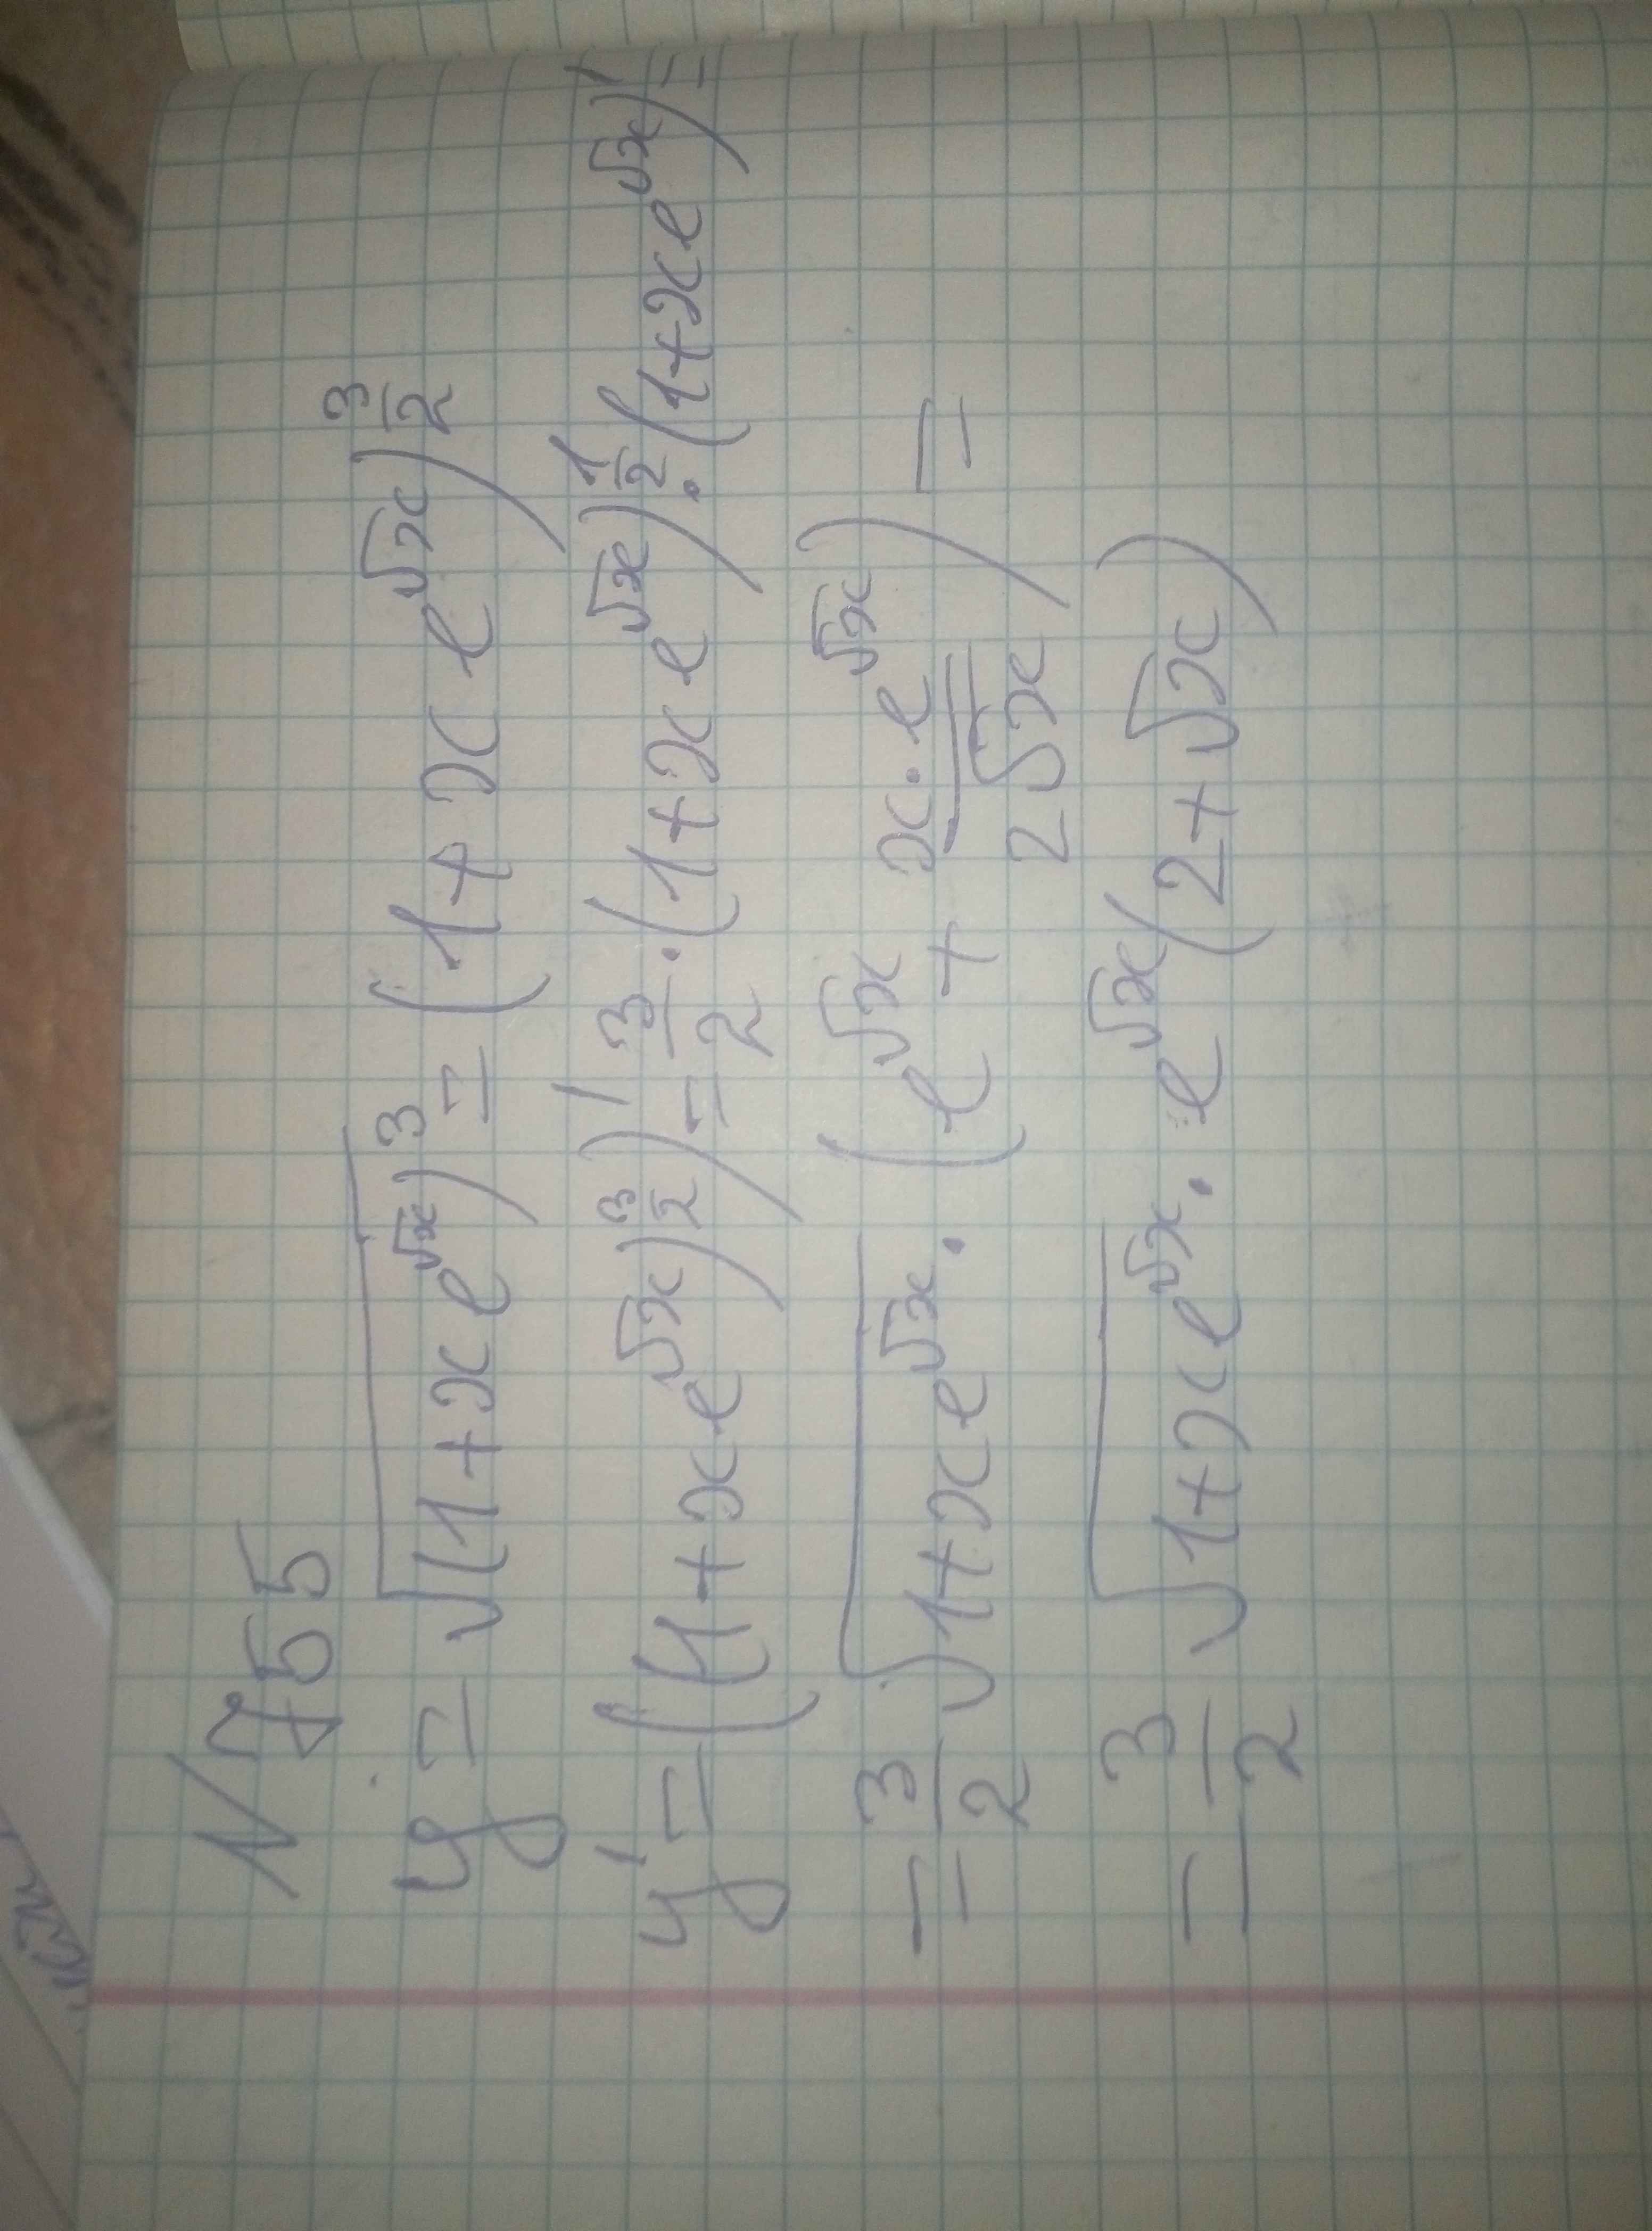 N 755
y = √(1+xe^√x)^3 = (1+xe^√x)^3/2
y' = ((1+xe^√x)^3/2)' = 3/2 · (1+xe^√x)^1/2 · (1+xe^√x)' =
= 3/2 √1+xe^√x · (e^√x + x·e^√x / 2√x) =
= 3/2 √1+xe^√x · e^√x (2+√x)